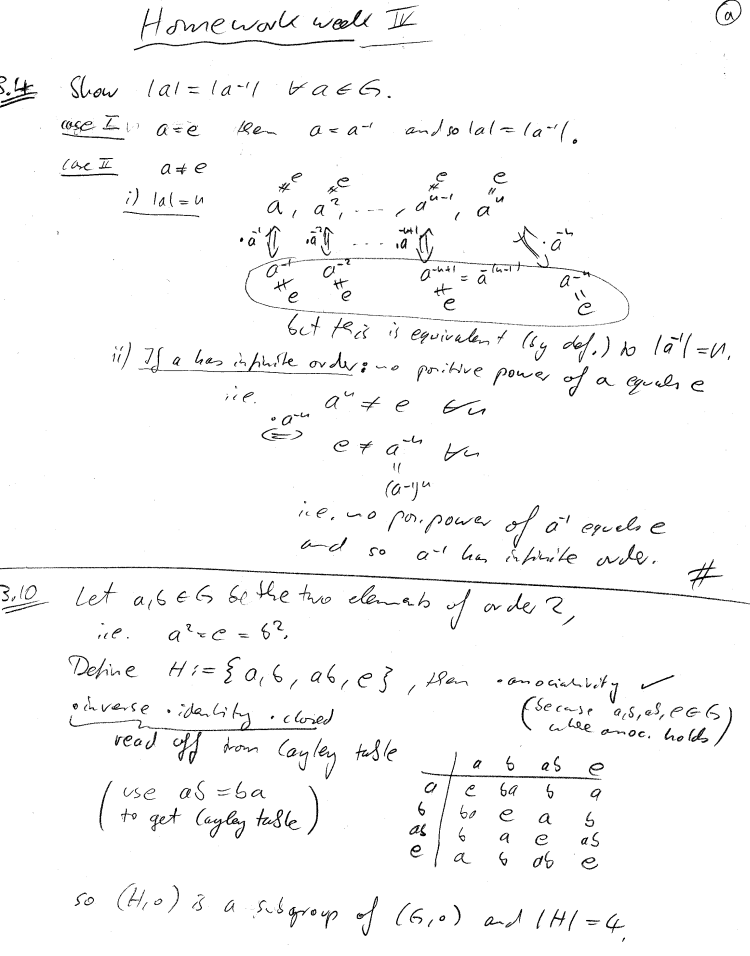 Homework week IV
ⓐ
3.4 Show |a| = |a⁻¹| ∀ a ∈ G.
case I a = e then a = a⁻¹ and so |a| = |a⁻¹|.
case II a ≠ e
i) |a| = n
e e e e
≠ ≠ ≠ =
a, a², ..., aⁿ⁻¹, aⁿ
·a⁻¹ ⇕ ·a⁻² ⇕ ... ·a⁻ⁿ⁺¹ ⇕ ⇕ ·a⁻ⁿ
a⁻¹ a⁻² a⁻ⁿ⁺¹ = a⁻⁽ⁿ⁻¹⁾ a⁻ⁿ
≠ ≠ ≠ =
e e e e
but this is equivalent (by def.) to |a⁻¹| = n.
ii) If a has infinite order: no positive power of a equals e
i.e. aⁿ ≠ e ∀n
·a⁻ⁿ
⇔ e ≠ a⁻ⁿ ∀n
=
(a⁻¹)ⁿ
i.e. no pos. power of a⁻¹ equals e
and so a⁻¹ has infinite order. #
3.10 Let a, b ∈ G be the two elements of order 2,
i.e. a² = e = b².
Define H := {a, b, ab, e}, then • associativity ✓
(because a, b, ab, e ∈ G
where assoc. holds)
• inverse • identity • closed
read off from Cayley table
(use ab = ba
to get Cayley table)
a b ab e
a e ba b a
b ba e a b
ab b a e ab
e a b ab e
so (H, ∘) is a subgroup of (G, ∘) and |H| = 4.